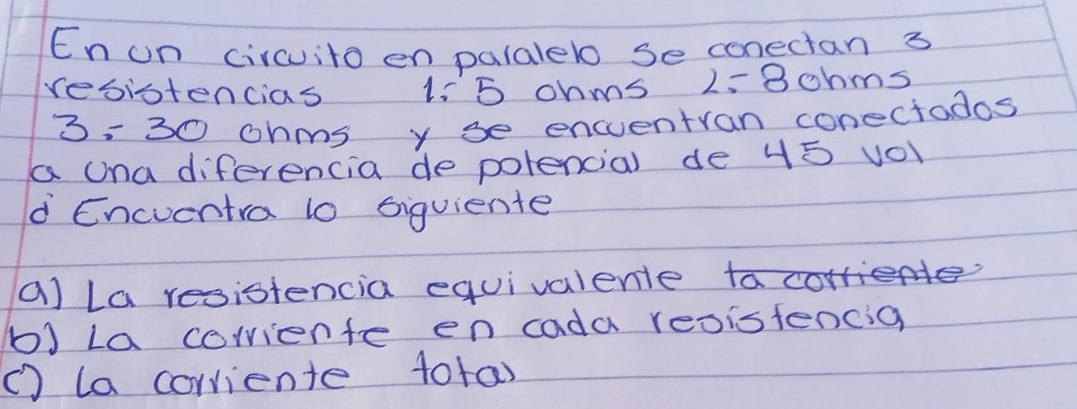 En un circuito en paralelo se conectan 3
resistencias 1.- 5 ohms 2.- 8 ohms
3.- 30 ohms y se encuentran conectados
a una diferencia de potencial de 45 vol
¿ Encuentra lo siguiente
a) La resistencia equivalente la corriente
b) La corriente en cada resistencia
c) La corriente total